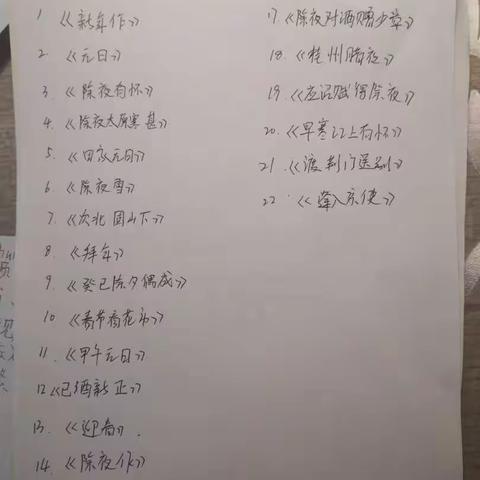 1 《新年作》
2. 《元日》
3 《除夜有怀》
4. 《除夜太原寒甚》
5. 《田家元日》
6. 《除夜雪》
7. 《次北固山下》
8. 《拜年》
9. 《癸已除夕偶成》
10 《春节看花市》
11. 《甲午元日》
12《已酉新正》
13. 《迎春》.
14. 《除夜作》
17 《除夜对酒赠少章》
18. 《桂州腊夜》
19. 《应诏赋得除夜》
20. 《早寒江上有怀》
21. 《渡荆门送别》
22. 《逢入京使》